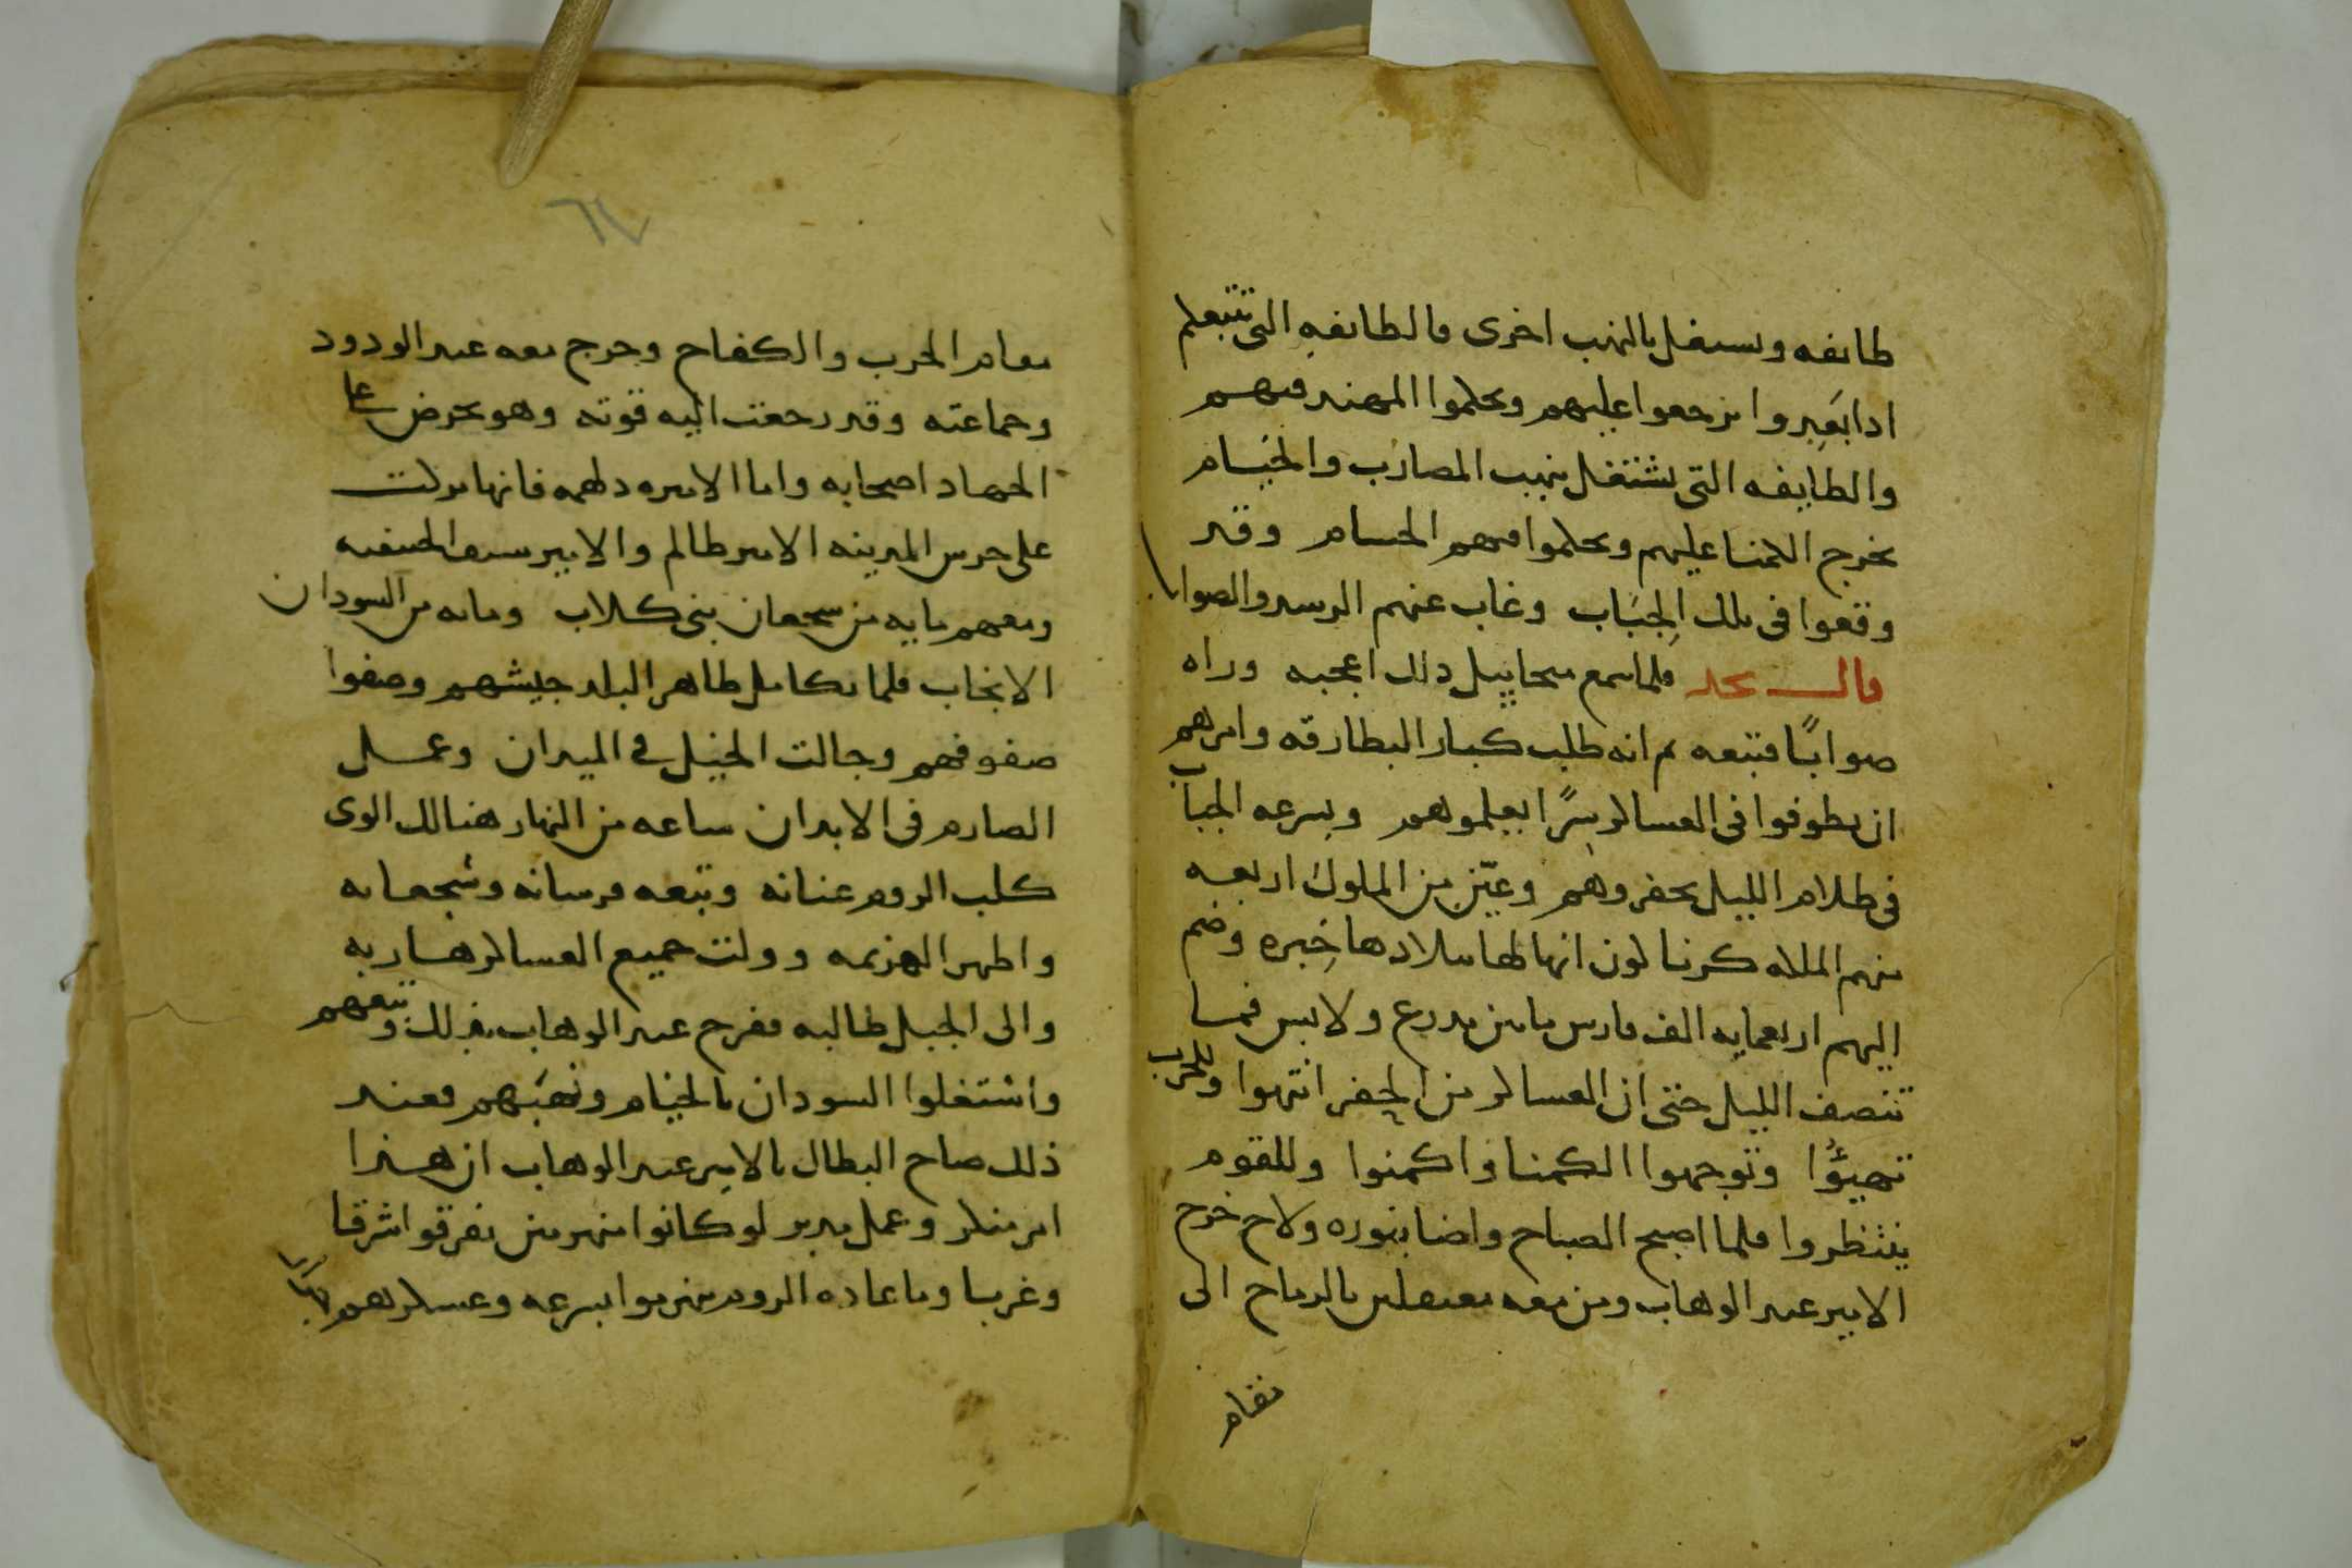 طايفه وتشتغل بالنهب اخرى فالطايفه التى تتبعلم
ادا بَعِدوا نرجعوا عليهم ويحكموا المهند فيهم
والطايفه التى تشتغل بنهب المضارب والخيام
يخرج الكمنا عليهم ويحكموا فيهم الحسام وقد
وقعوا فى تلك الجبَاب وغاب عنهم الرسد والصواب
قال نجد فلما سمع ميخاييل ذلك اعجبه وراه
صوابًا فتبعه ثم انه طلب كبار البطارقه وامرهم
ان يطوفوا فى العساكر سرًا يعلموهم وبسرعه الجباب
فى ظلام الليل يحفروهم وعيّن من الملوك اربعه
منهم الملكه كرنا لون انها لها ببلادها خِبره وضم
اليهم اربعمايه الف فارس مابين مدرع ولابس فما
تنصف الليل حتى ان العساكر من الحفر انتهوا وللحرب
تهيؤُا وتوجهوا الكمنا واكمنوا وللقوم
ينتظروا فلما اصبح الصباح واضا بنوره ولاح خرج
الامير عبد الوهاب ومن معه معتقلين بالرماح الى
مقام
٦٧
مقام الحرب والكفاح وخرج معه عبد الودود
وجماعته وقد رجعت اليه قوته وهو يحرض على
الجهاد اصحابه واما الاميره دلهمه فانها توكلت
على حرس المدينه الامير ظالم والامير سيف الحنيفيه
ومعهم مايه من شجعان بنى كلاب ومايه من السودان
الانجاب فلما تكامل ظاهر البلد جيشهم وصفوا
صفوفهم وجالت الخيل فى الميدان وعمل
الصارم فى الابدان ساعه من النهار هنالك الوى
كلب الروم عنانه وتبعه فرسانه وشجعانه
واظهر الهزيمه وولت جميع العساكر هاربه
والى الجبل طالبه ففرح عبد الوهاب بذلك وتبعهم
واشتغلوا السودان بالخيام ونهبَهم فعند
ذلك صاح البطال يالامير عبد الوهاب ان هذا
امر منكر وعمل مدبر لو كانوا منهزمين تفرقوا شرقا
وغربا وما عاده الروم ينهزموا بسرعه وعسكرهم